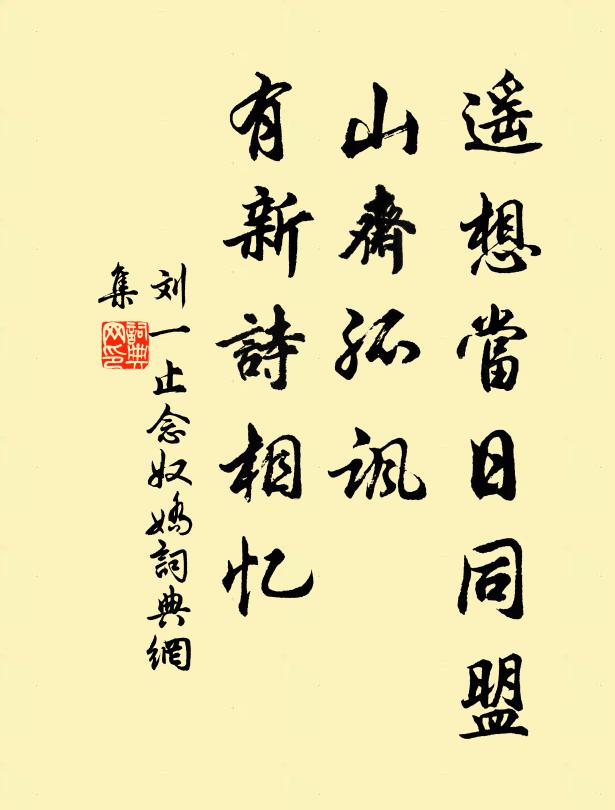 遥想當日同盟
山齋孤諷
有新詩相忆
刘一止念奴嬌詞典網
集
詞典網印